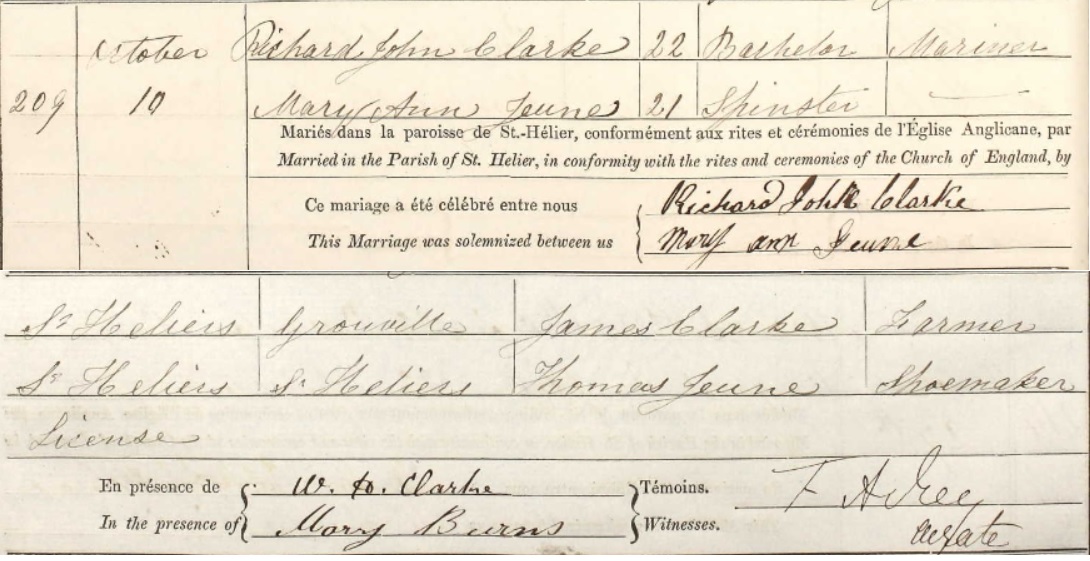 October Richard John Clarke 22 Bachelor Mariner
209 10 Mary Ann Jeune 21 Spinster
Mariés dans la paroisse de St.-Hélier, conformément aux rites et cérémonies de l'Église Anglicane, par
Married in the Parish of St. Helier, in conformity with the rites and ceremonies of the Church of England, by
Ce mariage a été célébré entre nous Richard John Clarke
This Marriage was solemnized between us Mary ann Jeune
St Heliers Grouville James Clarke Farmer
St Heliers St Heliers Thomas Jeune Shoemaker
License
En présence de W. H. Clarke Témoins.
In the presence of Mary Burns Witnesses.
F A